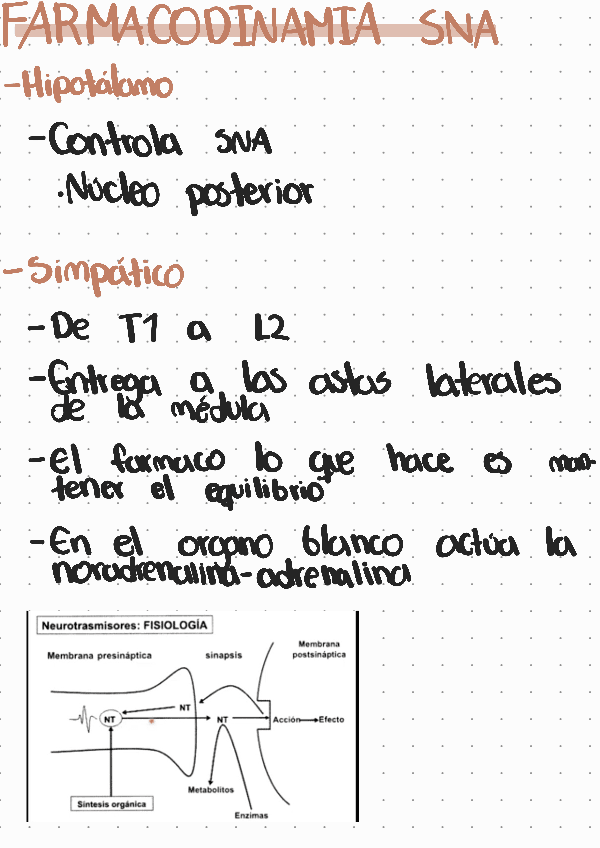 FARMACODINAMIA SNA
-Hipotálamo
-Controla SNA
·Núcleo posterior
-Simpático
-De T1 a L2
-Entrega a las astas laterales
de la médula
-El farmaco lo que hace es man-
tener el equilibrio
-En el organo blanco actúa la
noradrenalina-adrenalina
Neurotrasmisores: FISIOLOGÍA
Membrana presináptica
sinapsis
Membrana
postsináptica
NT
NT
NT
Acción
Efecto
Metabolitos
Síntesis orgánica
Enzimas